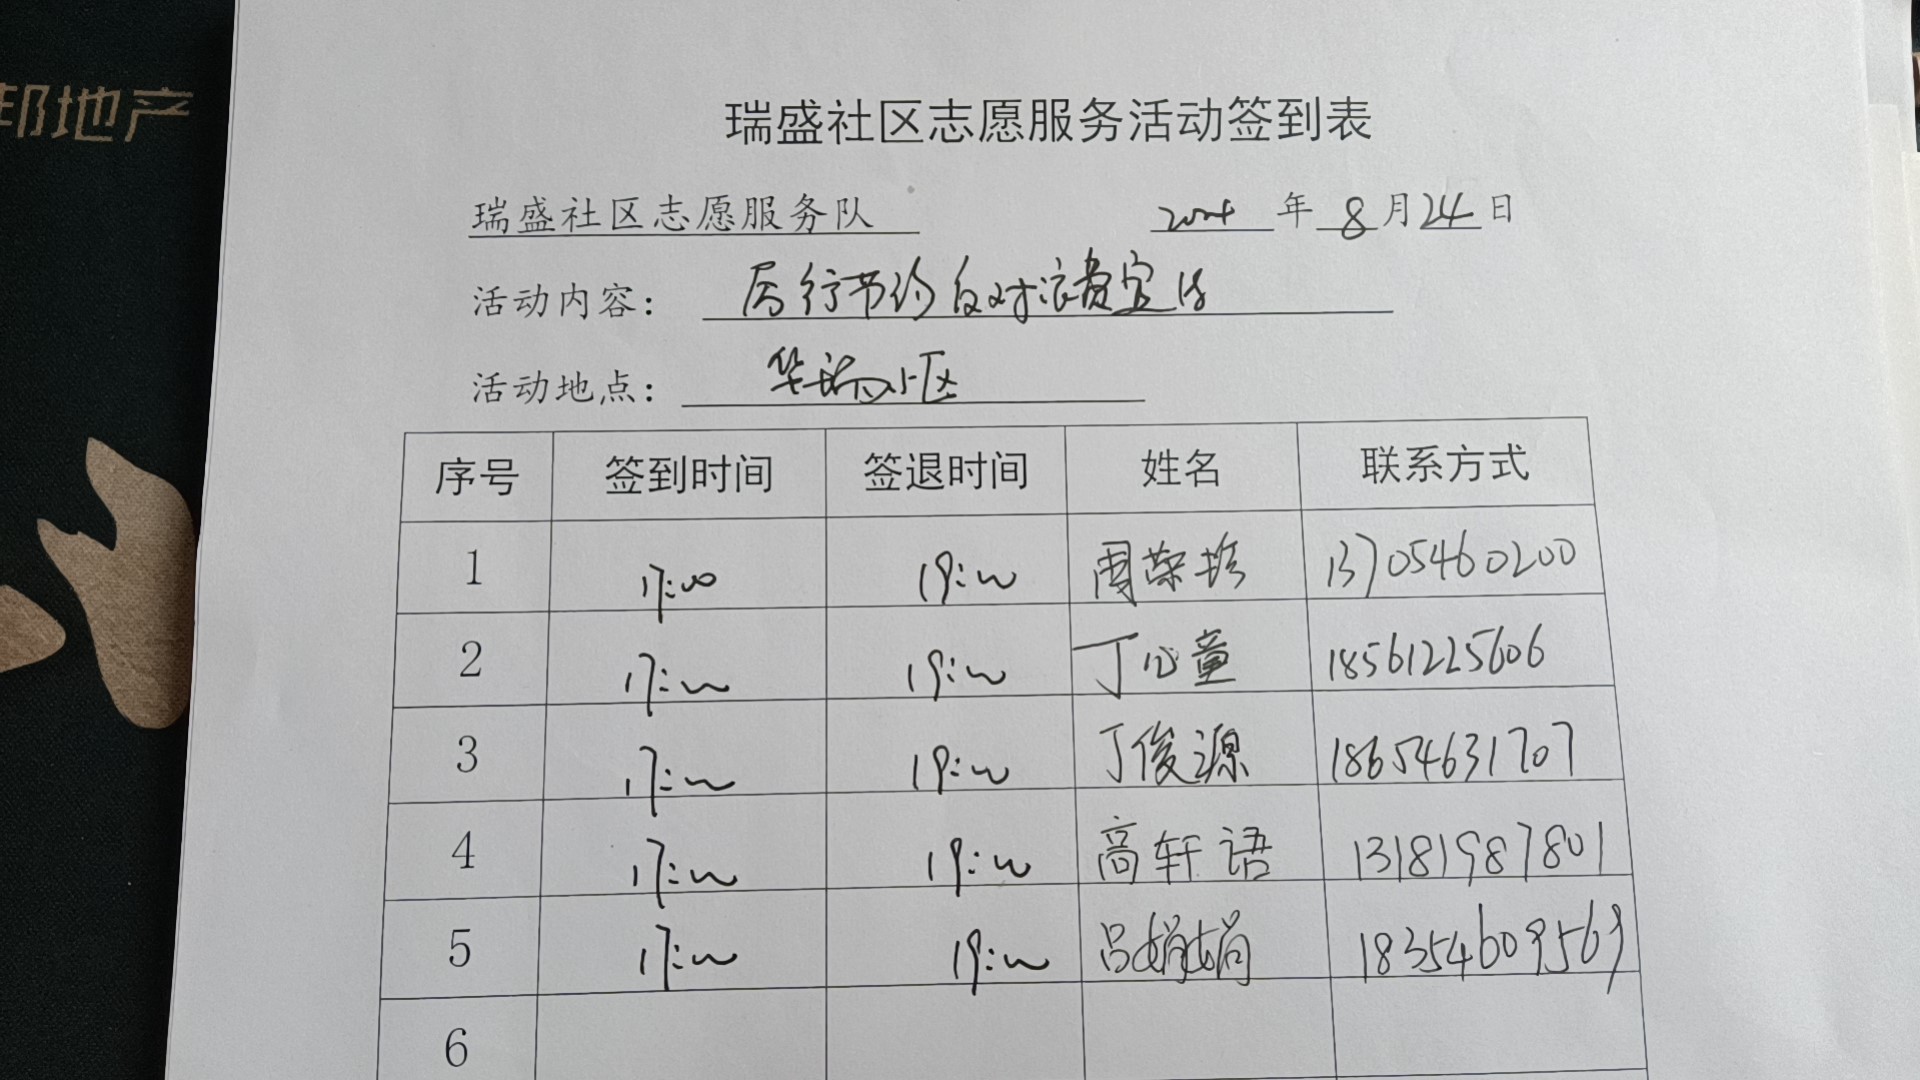 邦地产
瑞盛社区志愿服务活动签到表
瑞盛社区志愿服务队 2024 年 8 月 24 日
活动内容： 厉行节约反对浪费宣传
活动地点： 华瑞小区
序号 签到时间 签退时间 姓名 联系方式
1 17:00 19:00 周荣珍 13705460200
2 17:00 19:00 丁心童 18561225606
3 17:00 19:00 丁俊源 18654631707
4 17:00 19:00 高轩语 13181987801
5 17:00 19:00 吕娟娟 18354609569
6